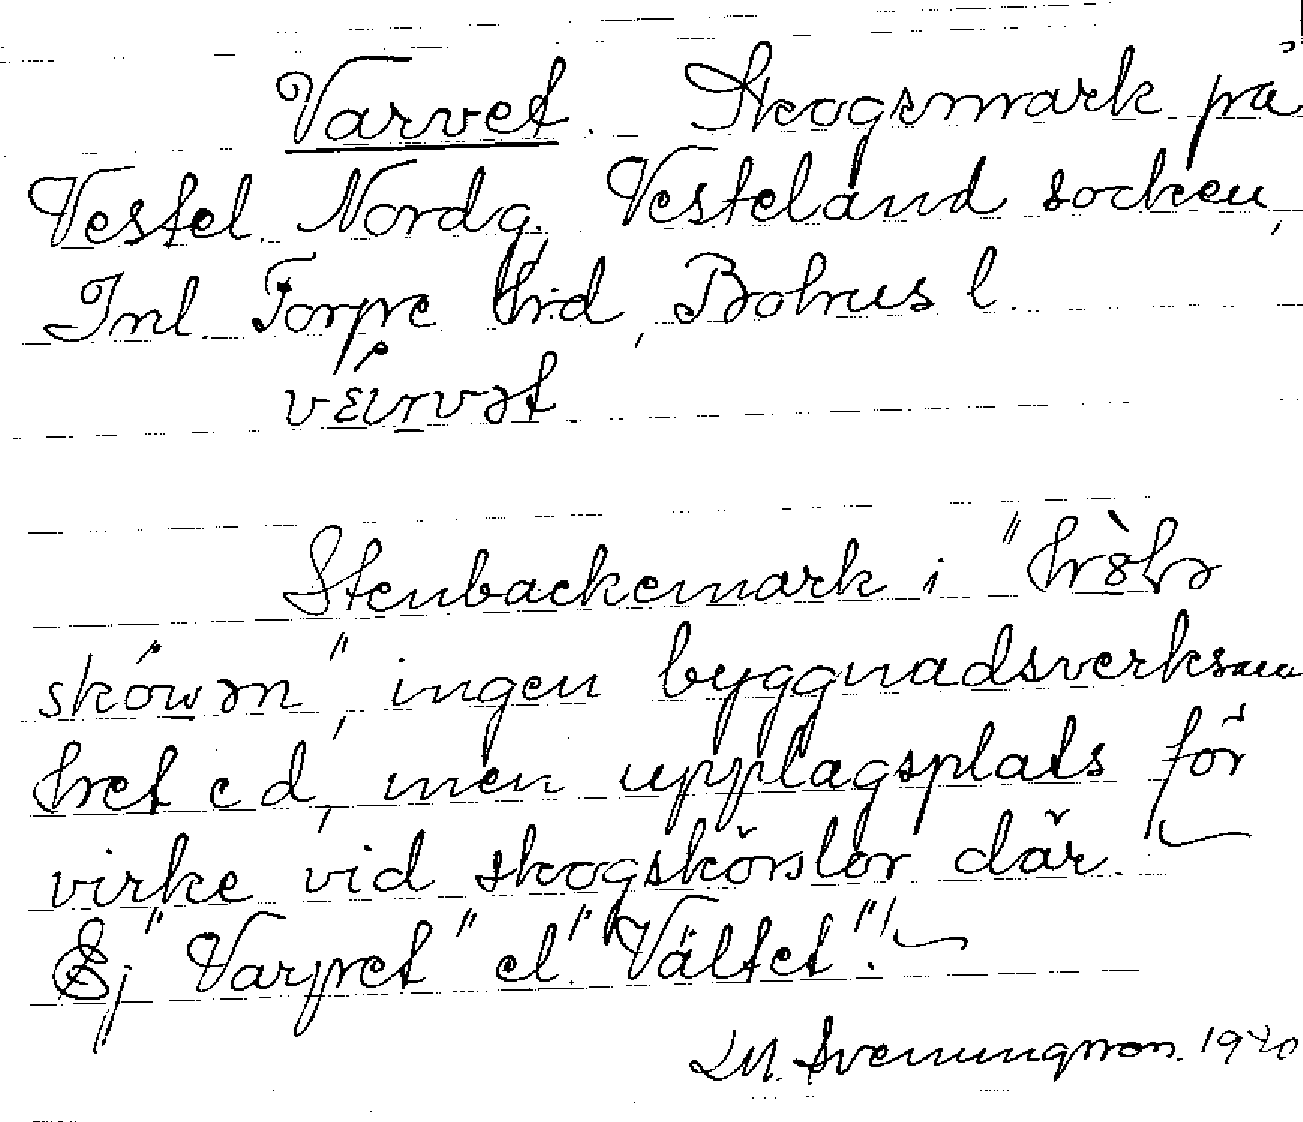 Varvet. Skogsmark på
Vestel. Nordg. Vesteland socken,
Inl. Torpe hrd, Bohus l.
Stenbackemark i
ingen byggnadsverksam
het e d, men upplagsplats för
virke vid skogskörslor där.
Ej "Varpet" el. "Vältet"!
M. Svenungsson. 1940